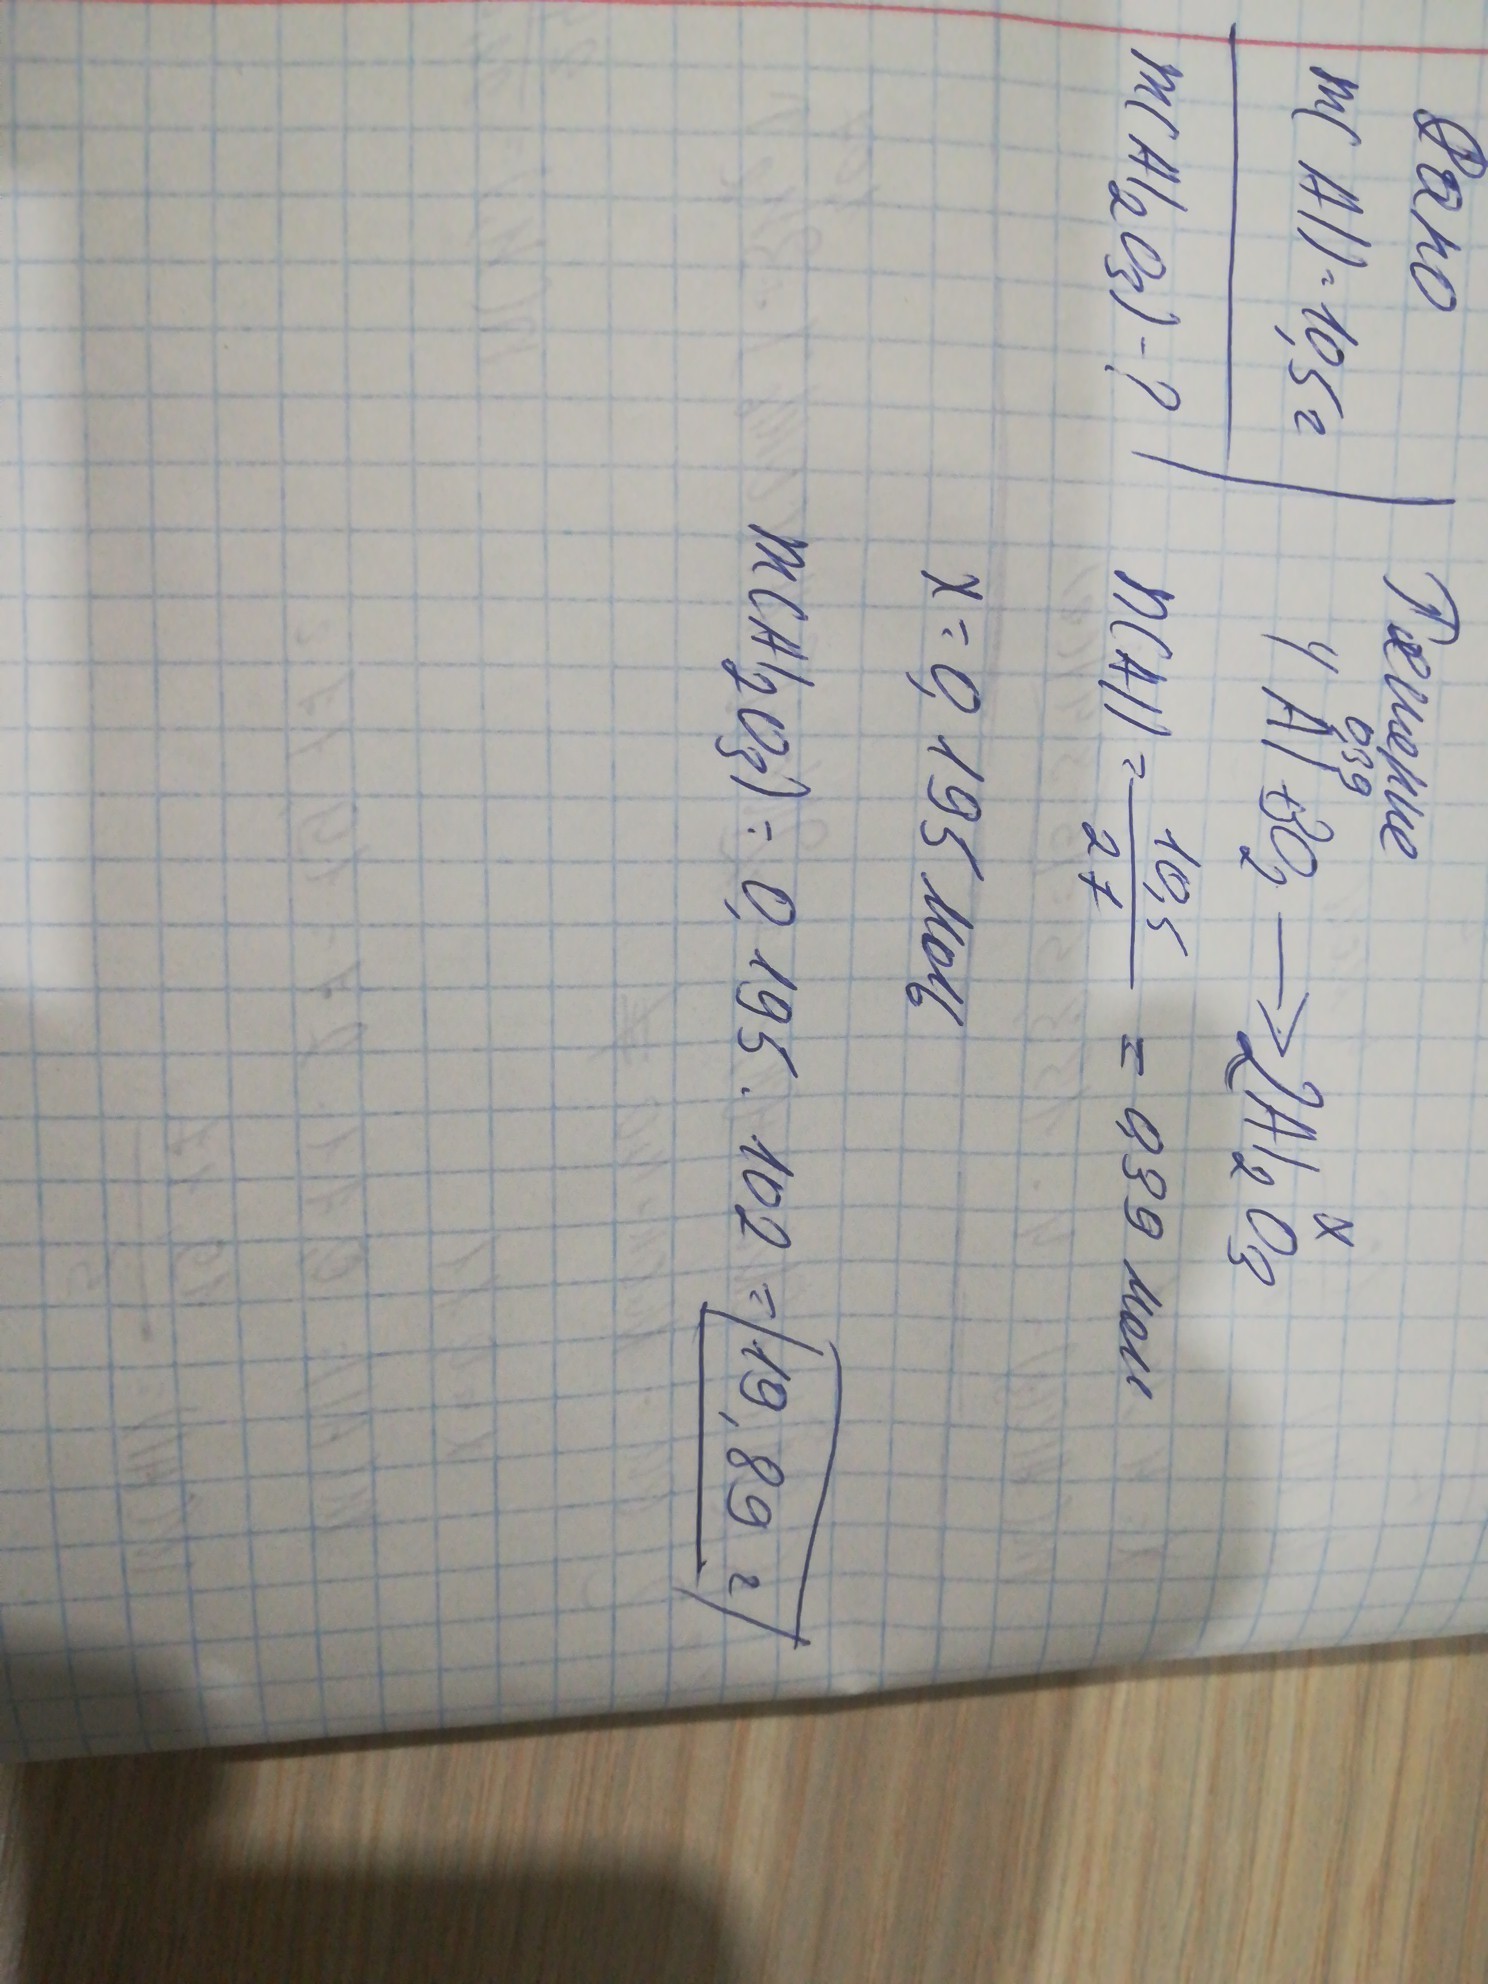 Дано
m(Al)=10,5 г
m(Al2O3)-?
Решение
0,39 x
4Al+3O2→2Al2O3
n(Al)=10,5/27=0,39 моль
x=0,195 моль
m(Al2O3)=0,195·102=19,89 г